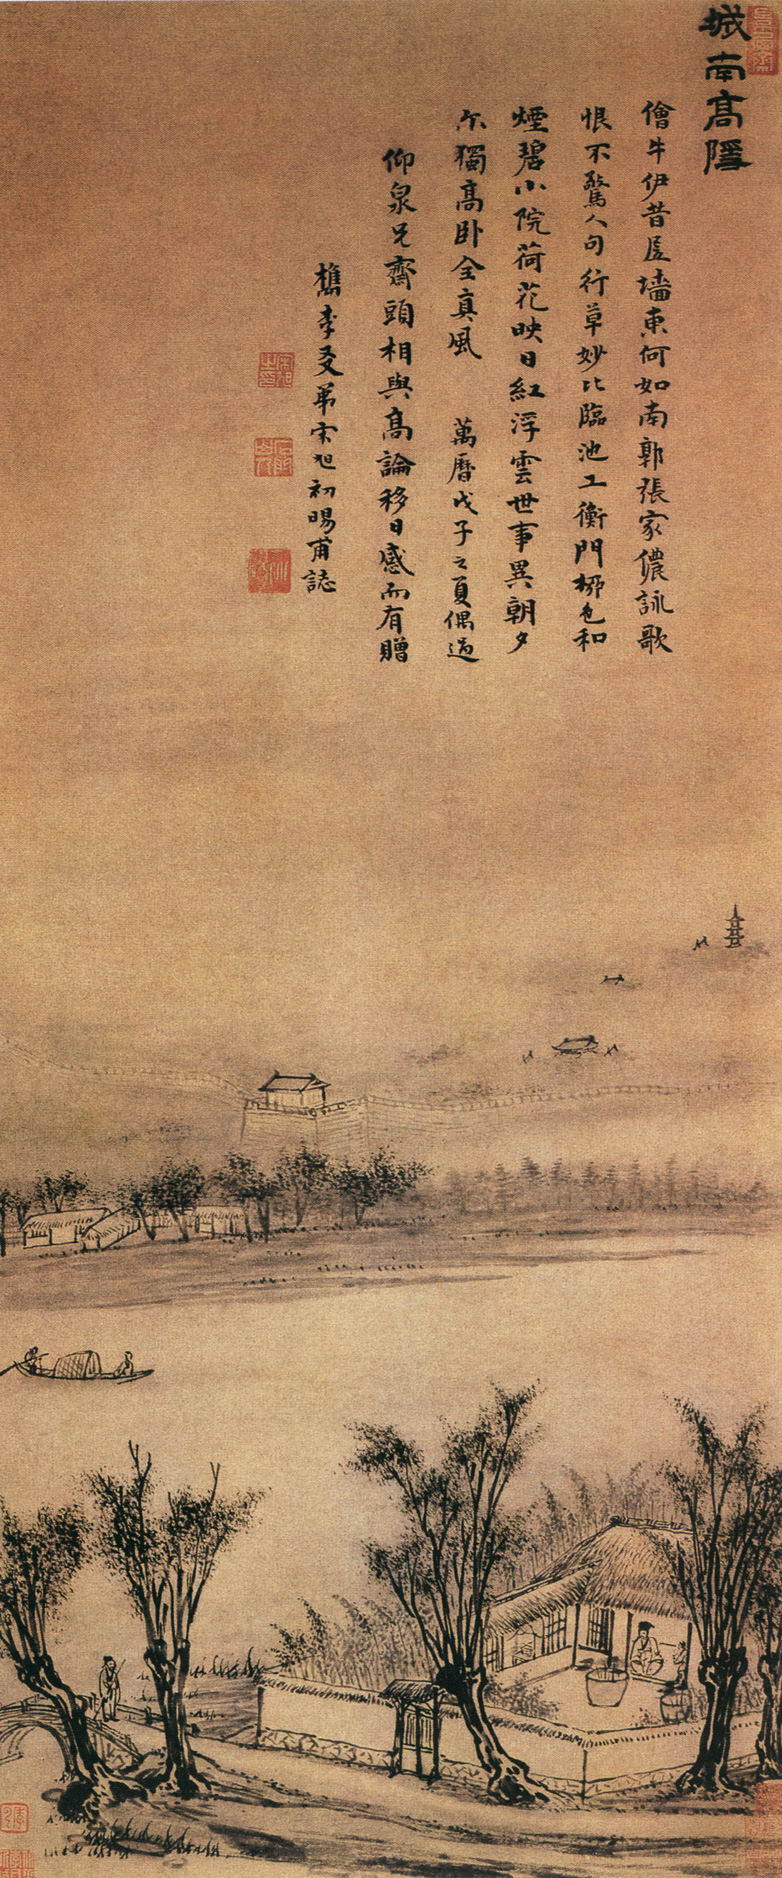 城南高隱
儈牛伊昔居墻東何如南郭張家儂詠歌
恨不驚人句行草妙比臨池工衡門柳色和
煙碧小院荷花映日紅浮雲世事異朝夕
尔獨高卧全真風 萬曆戊子之夏偶過
仰泉兄齋頭相與高論移日感而有贈
檇李友弟宋旭初暘甫誌
宋旭之印